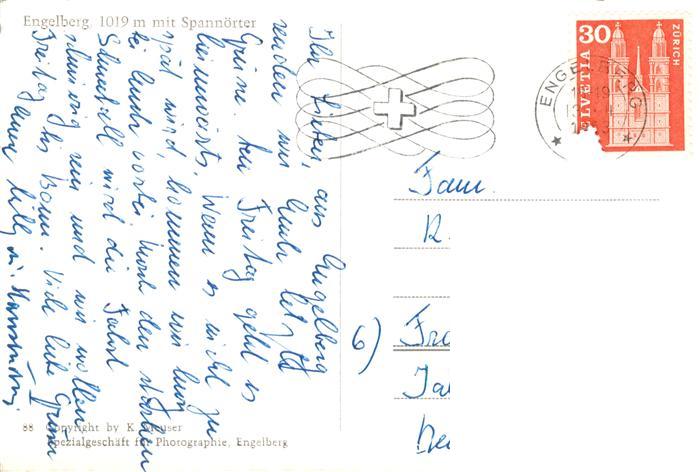 Engelberg, 1019 m mit Spannörter
Ihr Lieben, aus Engelberg
senden wir Euch letzte
Grüße. Am Freitag geht es
heimwärts. Wenn es nicht zu
spät wird, kommen wir kurz
bei Euch vorbei. Nach den starken
Schneefall wird die Fahrt
schwierig sein und wir wollen
Freitag bis Bonn. Viele liebe Grüße
88 Copyright by K. Meuser
Spezialgeschäft für Photographie, Engelberg
30
HELVETIA
ZÜRICH
ENGELBERG
Fam.
R.
6) Fra